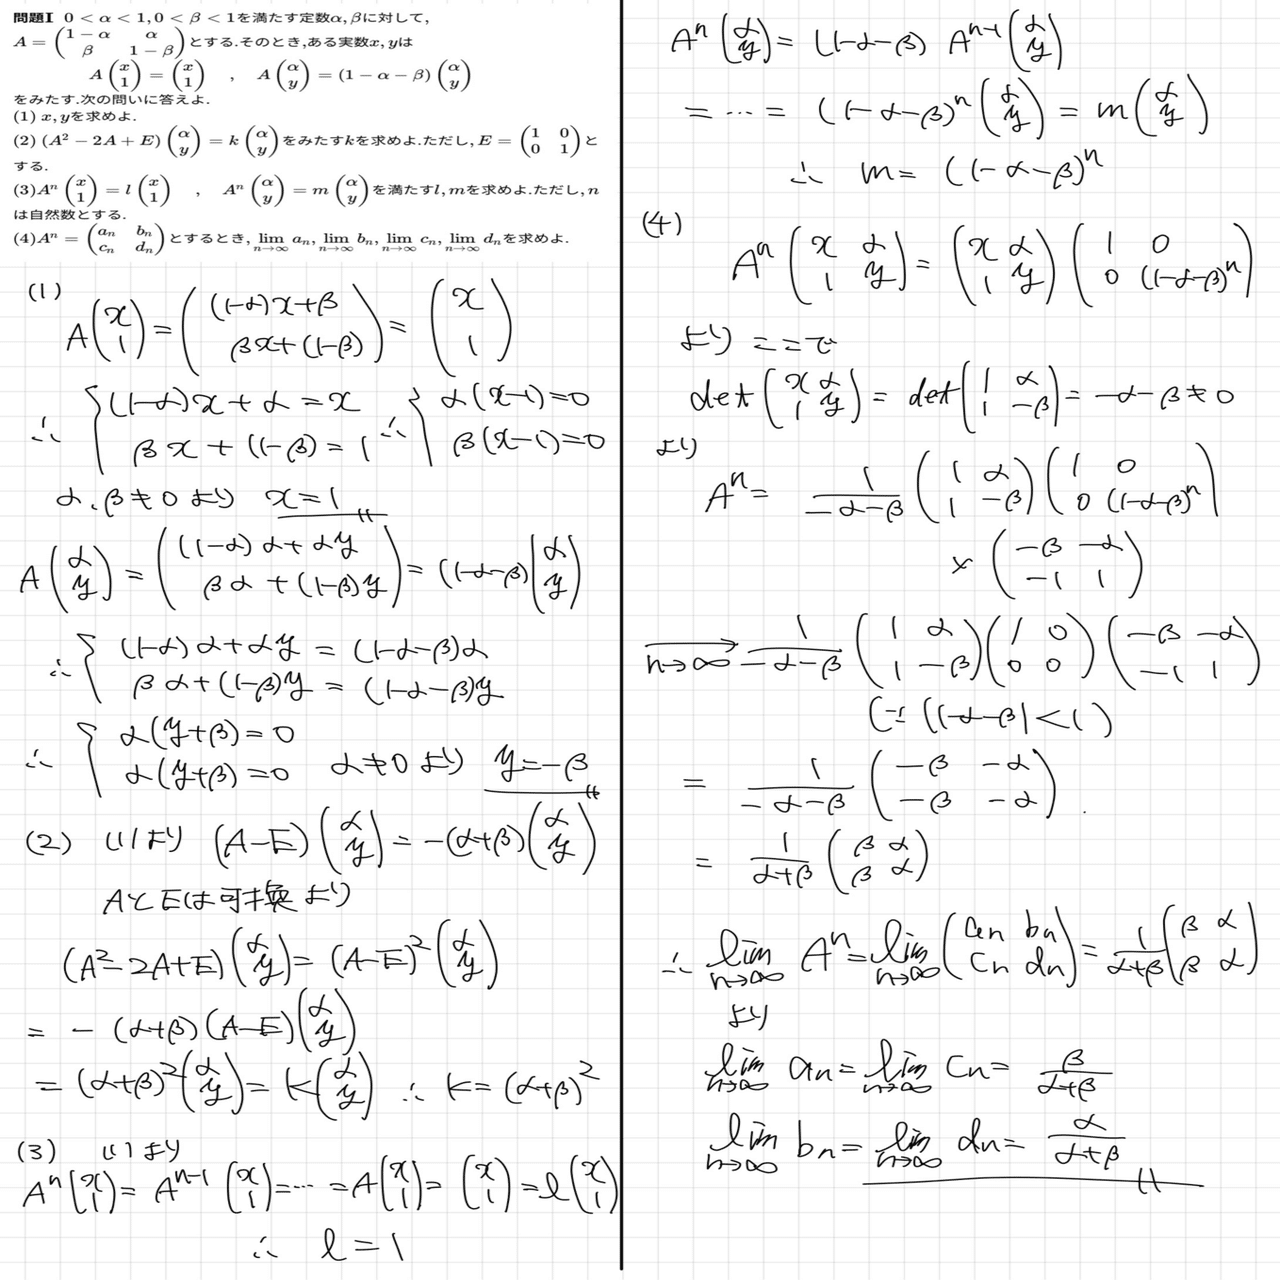 問題I 0 < α < 1, 0 < β < 1を満たす定数α, βに対して,
A = \begin{pmatrix} 1-α & α \\ β & 1-β \end{pmatrix} とする.そのとき,ある実数x, yは
A \begin{pmatrix} x \\ 1 \end{pmatrix} = \begin{pmatrix} x \\ 1 \end{pmatrix} , A \begin{pmatrix} α \\ y \end{pmatrix} = (1-α-β) \begin{pmatrix} α \\ y \end{pmatrix}
をみたす.次の問いに答えよ.
(1) x, yを求めよ.
(2) (A² - 2A + E) \begin{pmatrix} α \\ y \end{pmatrix} = k \begin{pmatrix} α \\ y \end{pmatrix} をみたすkを求めよ.ただし, E = \begin{pmatrix} 1 & 0 \\ 0 & 1 \end{pmatrix} と
する.
(3) Aⁿ \begin{pmatrix} x \\ 1 \end{pmatrix} = l \begin{pmatrix} x \\ 1 \end{pmatrix} , Aⁿ \begin{pmatrix} α \\ y \end{pmatrix} = m \begin{pmatrix} α \\ y \end{pmatrix} を満たすl, mを求めよ.ただし, n
は自然数とする.
(4) Aⁿ = \begin{pmatrix} a_n & b_n \\ c_n & d_n \end{pmatrix} とするとき, \lim_{n→∞} a_n, \lim_{n→∞} b_n, \lim_{n→∞} c_n, \lim_{n→∞} d_n を求めよ.
(1)
A \begin{pmatrix} x \\ 1 \end{pmatrix} = \begin{pmatrix} (1-α)x+β \\ βx+(1-β) \end{pmatrix} = \begin{pmatrix} x \\ 1 \end{pmatrix}
∴ { (1-α)x + α = x ∴ { α(x-1)=0
βx + (1-β) = 1 β(x-1)=0
α, β≠0 より x=1
A \begin{pmatrix} α \\ y \end{pmatrix} = \begin{pmatrix} (1-α)α+αy \\ βα+(1-β)y \end{pmatrix} = (1-α-β) \begin{pmatrix} α \\ y \end{pmatrix}
∴ { (1-α)α+αy = (1-α-β)α
βα+(1-β)y = (1-α-β)y
∴ { α(y+β)=0
α(y+β)=0 α≠0 より y=-β
(2) (1)より (A-E) \begin{pmatrix} α \\ y \end{pmatrix} = -(α+β) \begin{pmatrix} α \\ y \end{pmatrix}
AとEは可換より
(A²-2A+E) \begin{pmatrix} α \\ y \end{pmatrix} = (A-E)² \begin{pmatrix} α \\ y \end{pmatrix}
= -(α+β)(A-E) \begin{pmatrix} α \\ y \end{pmatrix}
= (α+β)² \begin{pmatrix} α \\ y \end{pmatrix} = k \begin{pmatrix} α \\ y \end{pmatrix} ∴ k=(α+β)²
(3) (1)より
Aⁿ \begin{pmatrix} x \\ 1 \end{pmatrix} = Aⁿ⁻¹ \begin{pmatrix} x \\ 1 \end{pmatrix} = ⋯ = A \begin{pmatrix} x \\ 1 \end{pmatrix} = \begin{pmatrix} x \\ 1 \end{pmatrix} = l \begin{pmatrix} x \\ 1 \end{pmatrix}
∴ l=1
Aⁿ \begin{pmatrix} α \\ y \end{pmatrix} = (1-α-β) Aⁿ⁻¹ \begin{pmatrix} α \\ y \end{pmatrix}
= ⋯ = (1-α-β)ⁿ \begin{pmatrix} α \\ y \end{pmatrix} = m \begin{pmatrix} α \\ y \end{pmatrix}
∴ m = (1-α-β)ⁿ
(4)
Aⁿ \begin{pmatrix} x & α \\ 1 & y \end{pmatrix} = \begin{pmatrix} x & α \\ 1 & y \end{pmatrix} \begin{pmatrix} 1 & 0 \\ 0 & (1-α-β)ⁿ \end{pmatrix}
より ここで
det \begin{pmatrix} x & α \\ 1 & y \end{pmatrix} = det \begin{pmatrix} 1 & α \\ 1 & -β \end{pmatrix} = -α-β≠0
より
Aⁿ = \frac{1}{-α-β} \begin{pmatrix} 1 & α \\ 1 & -β \end{pmatrix} \begin{pmatrix} 1 & 0 \\ 0 & (1-α-β)ⁿ \end{pmatrix}
× \begin{pmatrix} -β & -α \\ -1 & 1 \end{pmatrix}
\xrightarrow{n→∞} \frac{1}{-α-β} \begin{pmatrix} 1 & α \\ 1 & -β \end{pmatrix} \begin{pmatrix} 1 & 0 \\ 0 & 0 \end{pmatrix} \begin{pmatrix} -β & -α \\ -1 & 1 \end{pmatrix}
(∵ |1-α-β|<1)
= \frac{1}{-α-β} \begin{pmatrix} -β & -α \\ -β & -α \end{pmatrix}
= \frac{1}{α+β} \begin{pmatrix} β & α \\ β & α \end{pmatrix}
∴ \lim_{n→∞} Aⁿ = \lim_{n→∞} \begin{pmatrix} a_n & b_n \\ c_n & d_n \end{pmatrix} = \frac{1}{α+β} \begin{pmatrix} β & α \\ β & α \end{pmatrix}
より
\lim_{n→∞} a_n = \lim_{n→∞} c_n = \frac{β}{α+β}
\lim_{n→∞} b_n = \lim_{n→∞} d_n = \frac{α}{α+β}